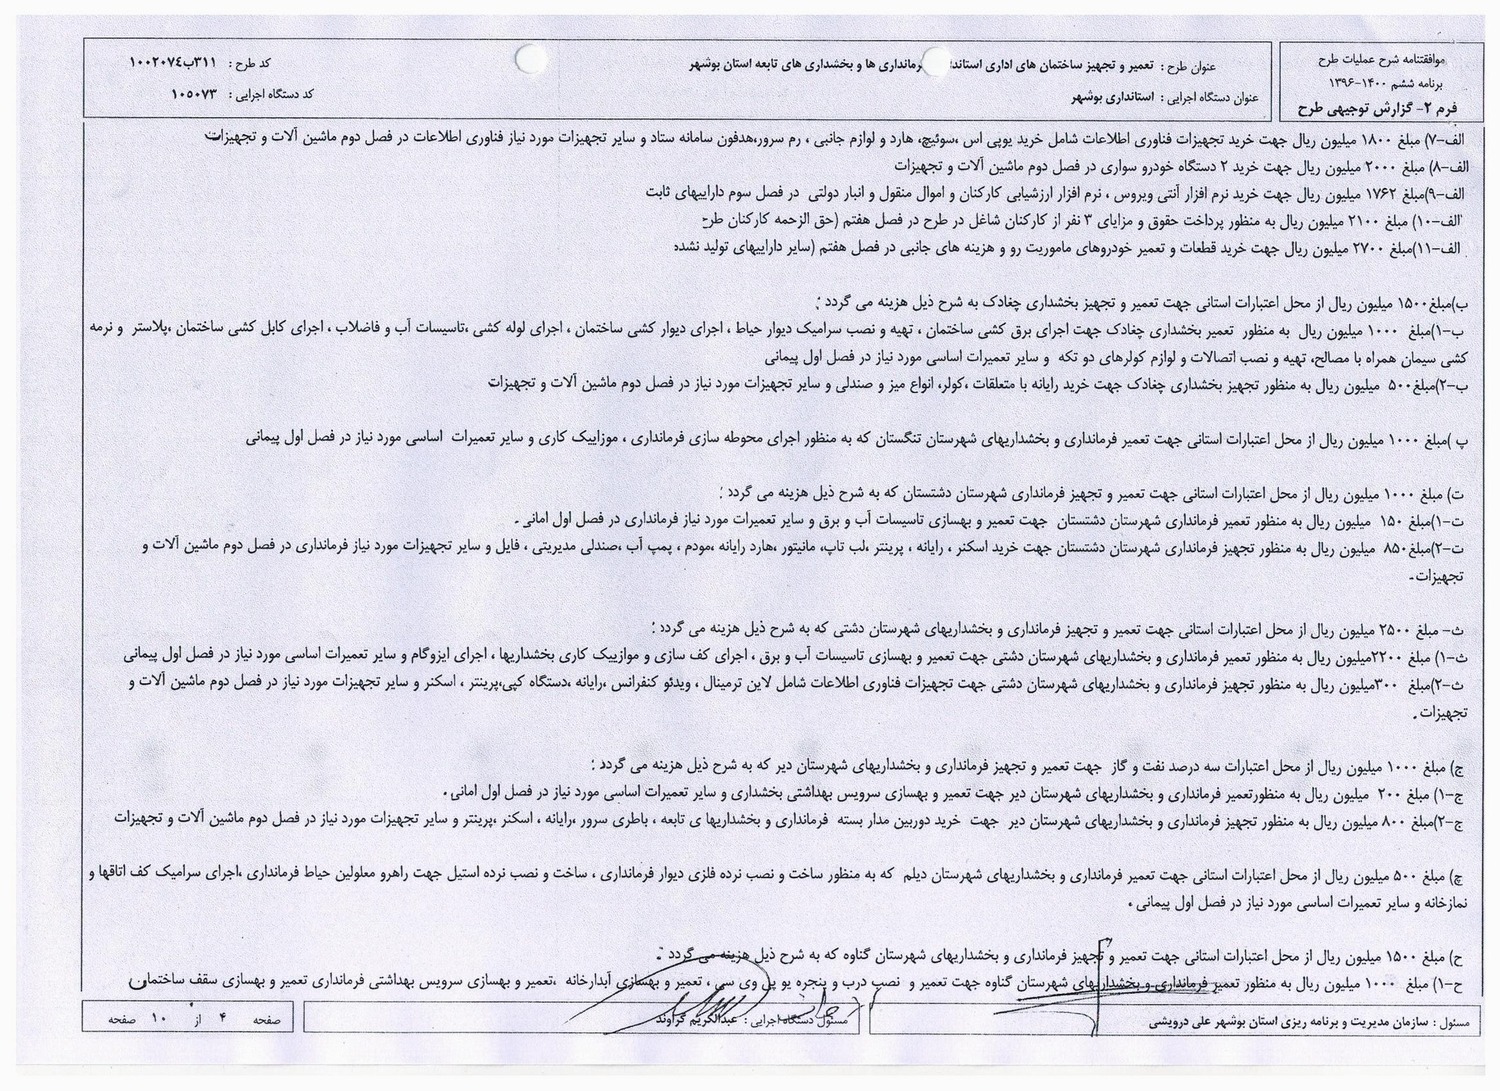 موافقتنامه شرح عملیات طرح
برنامه ششم ۱۴۰۰-۱۳۹۶
فرم ۲- گزارش توجیهی طرح
عنوان طرح : تعمیر و تجهیز ساختمان های اداری استاندا رمانداری ها و بخشداری های تابعه استان بوشهر
عنوان دستگاه اجرایی : استانداری بوشهر
کد طرح : ۳۱۱ب۱۰۰۲۰۷٤
کد دستگاه اجرایی : ۱۰۵۰۷۳
الف-۷) مبلغ ۱۸۰۰ میلیون ریال جهت خرید تجهیزات فناوری اطلاعات شامل خرید یوپی اس ،سوئیچ، هارد و لوازم جانبی ، رم سرور،هدفون سامانه ستاد و سایر تجهیزات مورد نیاز فناوری اطلاعات در فصل دوم ماشین آلات و تجهیزات
الف-۸) مبلغ ۲۰۰۰ میلیون ریال جهت خرید ۲ دستگاه خودرو سواری در فصل دوم ماشین آلات و تجهیزات
الف-۹)مبلغ ۱۷۶۲ میلیون ریال جهت خرید نرم افزار آنتی ویروس ، نرم افزار ارزشیابی کارکنان و اموال منقول و انبار دولتی در فصل سوم داراییهای ثابت
الف-۱۰) مبلغ ۲۱۰۰ میلیون ریال به منظور پرداخت حقوق و مزایای ۳ نفر از کارکنان شاغل در طرح در فصل هفتم (حق الزحمه کارکنان طرح
الف-۱۱)مبلغ ۲۷۰۰ میلیون ریال جهت خرید قطعات و تعمیر خودروهای ماموریت رو و هزینه های جانبی در فصل هفتم (سایر داراییهای تولید نشده
ب)مبلغ۱۵۰۰ میلیون ریال از محل اعتبارات استانی جهت تعمیر و تجهیز بخشداری چغادک به شرح ذیل هزینه می گردد :
ب-۱)مبلغ ۱۰۰۰ میلیون ریال به منظور تعمیر بخشداری چغادک جهت اجرای برق کشی ساختمان ، تهیه و نصب سرامیک دیوار حیاط ، اجرای دیوار کشی ساختمان ، اجرای لوله کشی ،تاسیسات آب و فاضلاب ، اجرای کابل کشی ساختمان ،پلاستر و نرمه
کشی سیمان همراه با مصالح، تهیه و نصب اتصالات و لوازم کولرهای دو تکه و سایر تعمیرات اساسی مورد نیاز در فصل اول پیمانی
ب-۲)مبلغ۵۰۰ میلیون ریال به منظور تجهیز بخشداری چغادک جهت خرید رایانه با متعلقات ،کولر، انواع میز و صندلی و سایر تجهیزات مورد نیاز در فصل دوم ماشین آلات و تجهیزات
پ )مبلغ ۱۰۰۰ میلیون ریال از محل اعتبارات استانی جهت تعمیر فرمانداری و بخشداریهای شهرستان تنگستان که به منظور اجرای محوطه سازی فرمانداری ، موزاییک کاری و سایر تعمیرات اساسی مورد نیاز در فصل اول پیمانی
ت) مبلغ ۱۰۰۰ میلیون ریال از محل اعتبارات استانی جهت تعمیر و تجهیز فرمانداری شهرستان دشتستان که به شرح ذیل هزینه می گردد :
ت-۱)مبلغ ۱۵۰ میلیون ریال به منظور تعمیر فرمانداری شهرستان دشتستان جهت تعمیر و بهسازی تاسیسات آب و برق و سایر تعمیرات مورد نیاز فرمانداری در فصل اول امانی .
ت-۲)مبلغ۸۵۰ میلیون ریال به منظور تجهیز فرمانداری شهرستان دشتستان جهت خرید اسکنر ، رایانه ، پرینتر ،لب تاپ، مانیتور ،هارد رایانه ،مودم ، پمپ آب ،صندلی مدیریتی ، فایل و سایر تجهیزات مورد نیاز فرمانداری در فصل دوم ماشین آلات و
تجهیزات.
ث- مبلغ ۲۵۰۰ میلیون ریال از محل اعتبارات استانی جهت تعمیر و تجهیز فرمانداری و بخشداریهای شهرستان دشتی که به شرح ذیل هزینه می گردد :
ث-۱) مبلغ ۲۲۰۰میلیون ریال به منظور تعمیر فرمانداری و بخشداریهای شهرستان دشتی جهت تعمیر و بهسازی تاسیسات آب و برق ، اجرای کف سازی و موازییک کاری بخشداریها ، اجرای ایزوگام و سایر تعمیرات اساسی مورد نیاز در فصل اول پیمانی
ث-۲)مبلغ ۳۰۰میلیون ریال به منظور تجهیز فرمانداری و بخشداریهای شهرستان دشتی جهت تجهیزات فناوری اطلاعات شامل لاین ترمینال ، ویدئو کنفرانس ،رایانه ،دستگاه کپی،پرینتر ، اسکنر و سایر تجهیزات مورد نیاز در فصل دوم ماشین آلات و
تجهیزات .
ج) مبلغ ۱۰۰۰ میلیون ریال از محل اعتبارات سه درصد نفت و گاز جهت تعمیر و تجهیز فرمانداری و بخشداریهای شهرستان دیر که به شرح ذیل هزینه می گردد :
ج-۱) مبلغ ۲۰۰ میلیون ریال به منظورتعمیر فرمانداری و بخشداریهای شهرستان دیر جهت تعمیر و بهسازی سرویس بهداشتی بخشداری و سایر تعمیرات اساسی مورد نیاز در فصل اول امانی .
ج-۲)مبلغ ۸۰۰ میلیون ریال به منظور تجهیز فرمانداری و بخشداریهای شهرستان دیر جهت خرید دوربین مدار بسته فرمانداری و بخشداریها ی تابعه ، باطری سرور ،رایانه ، اسکنر ،پرینتر و سایر تجهیزات مورد نیاز در فصل دوم ماشین آلات و تجهیزات
چ) مبلغ ۵۰۰ میلیون ریال از محل اعتبارات استانی جهت تعمیر فرمانداری و بخشداریهای شهرستان دیلم که به منظور ساخت و نصب نرده فلزی دیوار فرمانداری ، ساخت و نصب نرده استیل جهت راهرو معلولین حیاط فرمانداری ،اجرای سرامیک کف اتاقها و
نمازخانه و سایر تعمیرات اساسی مورد نیاز در فصل اول پیمانی .
ح) مبلغ ۱۵۰۰ میلیون ریال از محل اعتبارات استانی جهت تعمیر و تجهیز فرمانداری و بخشداریهای شهرستان گناوه که به شرح ذیل هزینه می گردد :
ح-۱) مبلغ ۱۰۰۰ میلیون ریال به منظور تعمیر فرمانداری و بخشداریهای شهرستان گناوه جهت تعمیر و نصب درب و پنجره یو پی وی سی ، تعمیر و بهسازی آبدارخانه ،تعمیر و بهسازی سرویس بهداشتی فرمانداری تعمیر و بهسازی سقف ساختمان
مسئول : سازمان مدیریت و برنامه ریزی استان بوشهر علی درویشی
مسئول دستگاه اجرایی : عبدالکریم گراوند
صفحه ۴ از ۱۰ صفحه